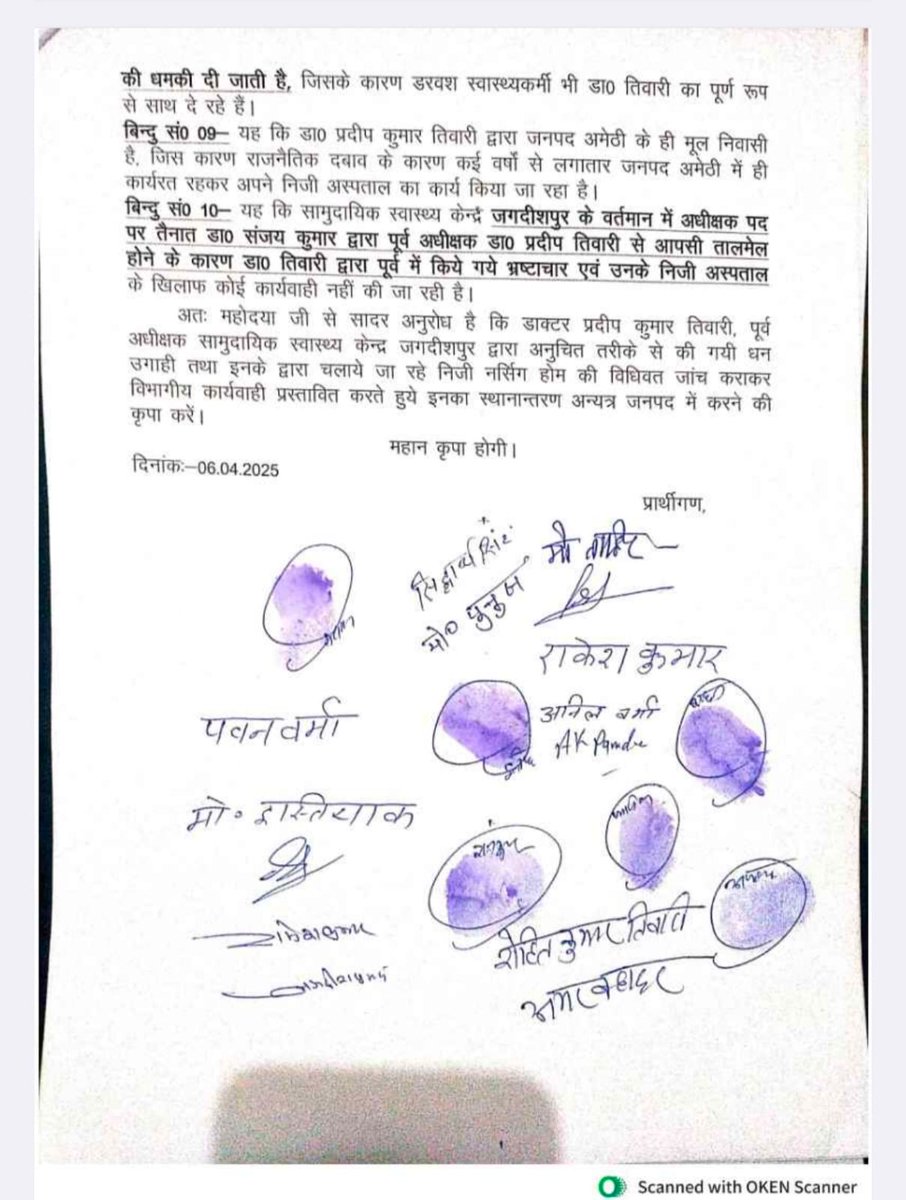 की धमकी दी जाती है, जिसके कारण डरवश स्वास्थ्यकर्मी भी डा0 तिवारी का पूर्ण रूप
से साथ दे रहे हैं।
बिन्दु सं0 09– यह कि डा0 प्रदीप कुमार तिवारी द्वारा जनपद अमेठी के ही मूल निवासी
है, जिस कारण राजनैतिक दबाव के कारण कई वर्षों से लगातार जनपद अमेठी में ही
कार्यरत रहकर अपने निजी अस्पताल का कार्य किया जा रहा है।
बिन्दु सं0 10– यह कि सामुदायिक स्वास्थ्य केन्द्र जगदीशपुर के वर्तमान में अधीक्षक पद
पर तैनात डा0 संजय कुमार द्वारा पूर्व अधीक्षक डा0 प्रदीप तिवारी से आपसी तालमेल
होने के कारण डा0 तिवारी द्वारा पूर्व में किये गये भ्रष्टाचार एवं उनके निजी अस्पताल
के खिलाफ कोई कार्यवाही नहीं की जा रही है।
अतः महोदया जी से सादर अनुरोध है कि डाक्टर प्रदीप कुमार तिवारी, पूर्व
अधीक्षक सामुदायिक स्वास्थ्य केन्द्र जगदीशपुर द्वारा अनुचित तरीके से की गयी धन
उगाही तथा इनके द्वारा चलाये जा रहे निजी नर्सिग होम की विधिवत जांच कराकर
विभागीय कार्यवाही प्रस्तावित करते हुये इनका स्थानान्तरण अन्यत्र जनपद में करने की
कृपा करें।
महान कृपा होगी।
दिनांकः–06.04.2025
प्रार्थीगण,
सिद्धार्थ सिंह
मो०
राकेश कुमार
पवन वर्मा
अनिल वर्मा
मो० इस्तियाक
रोहित कुमार तिवारी
अमर बहादुर
Scanned with OKEN Scanner